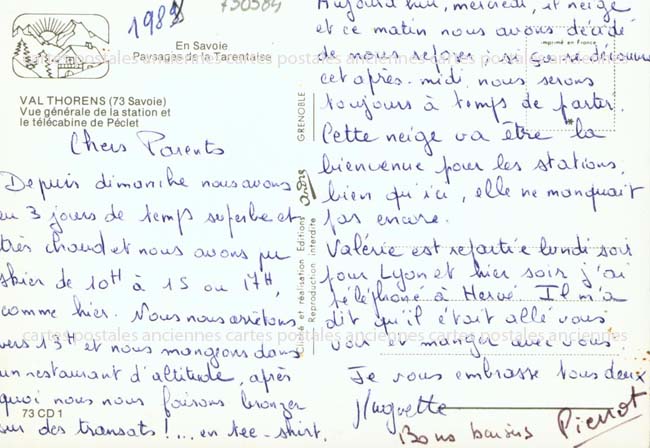 1982
730584
En Savoie
Paysages de la Tarentaise
VAL THORENS (73 Savoie)
Vue générale de la station et
le télécabine de Péclet
Chers Parents
Depuis dimanche nous avons
eu 3 jours de temps superbe et
très chaud et nous avons pu
skier de 10H à 15 ou 17H,
comme hier. Nous nous arrêtons
vers 13H et nous mangeons dans
un restaurant d'altitude, après
quoi nous nous faisons bronzer
sur des transats !... en tee-shirt.
73 CD 1
Cliché et réalisation Editions andré GRENOBLE
Reproduction interdite
Imprimé en France
Aujourd'hui, mercredi, il neige
et ce matin nous avons décidé
de nous reposer : si ça se découvre
cet après-midi, nous serons
toujours à temps de partir.
Cette neige va être la
bienvenue pour les stations,
bien qu'ici, elle ne manquait
pas encore.
Valérie est repartie lundi soir
pour Lyon et hier soir j'ai
téléphoné à Hervé. Il m'a
dit qu'il était allé vous
voir et manger avec vous.
Je vous embrasse tous deux
Huguette
Bons baisers Pierrot
cartes postales anciennes cartes postales anciennes cartes postales anciennes
cartes postales anciennes cartes postales anciennes cartes postales anciennes